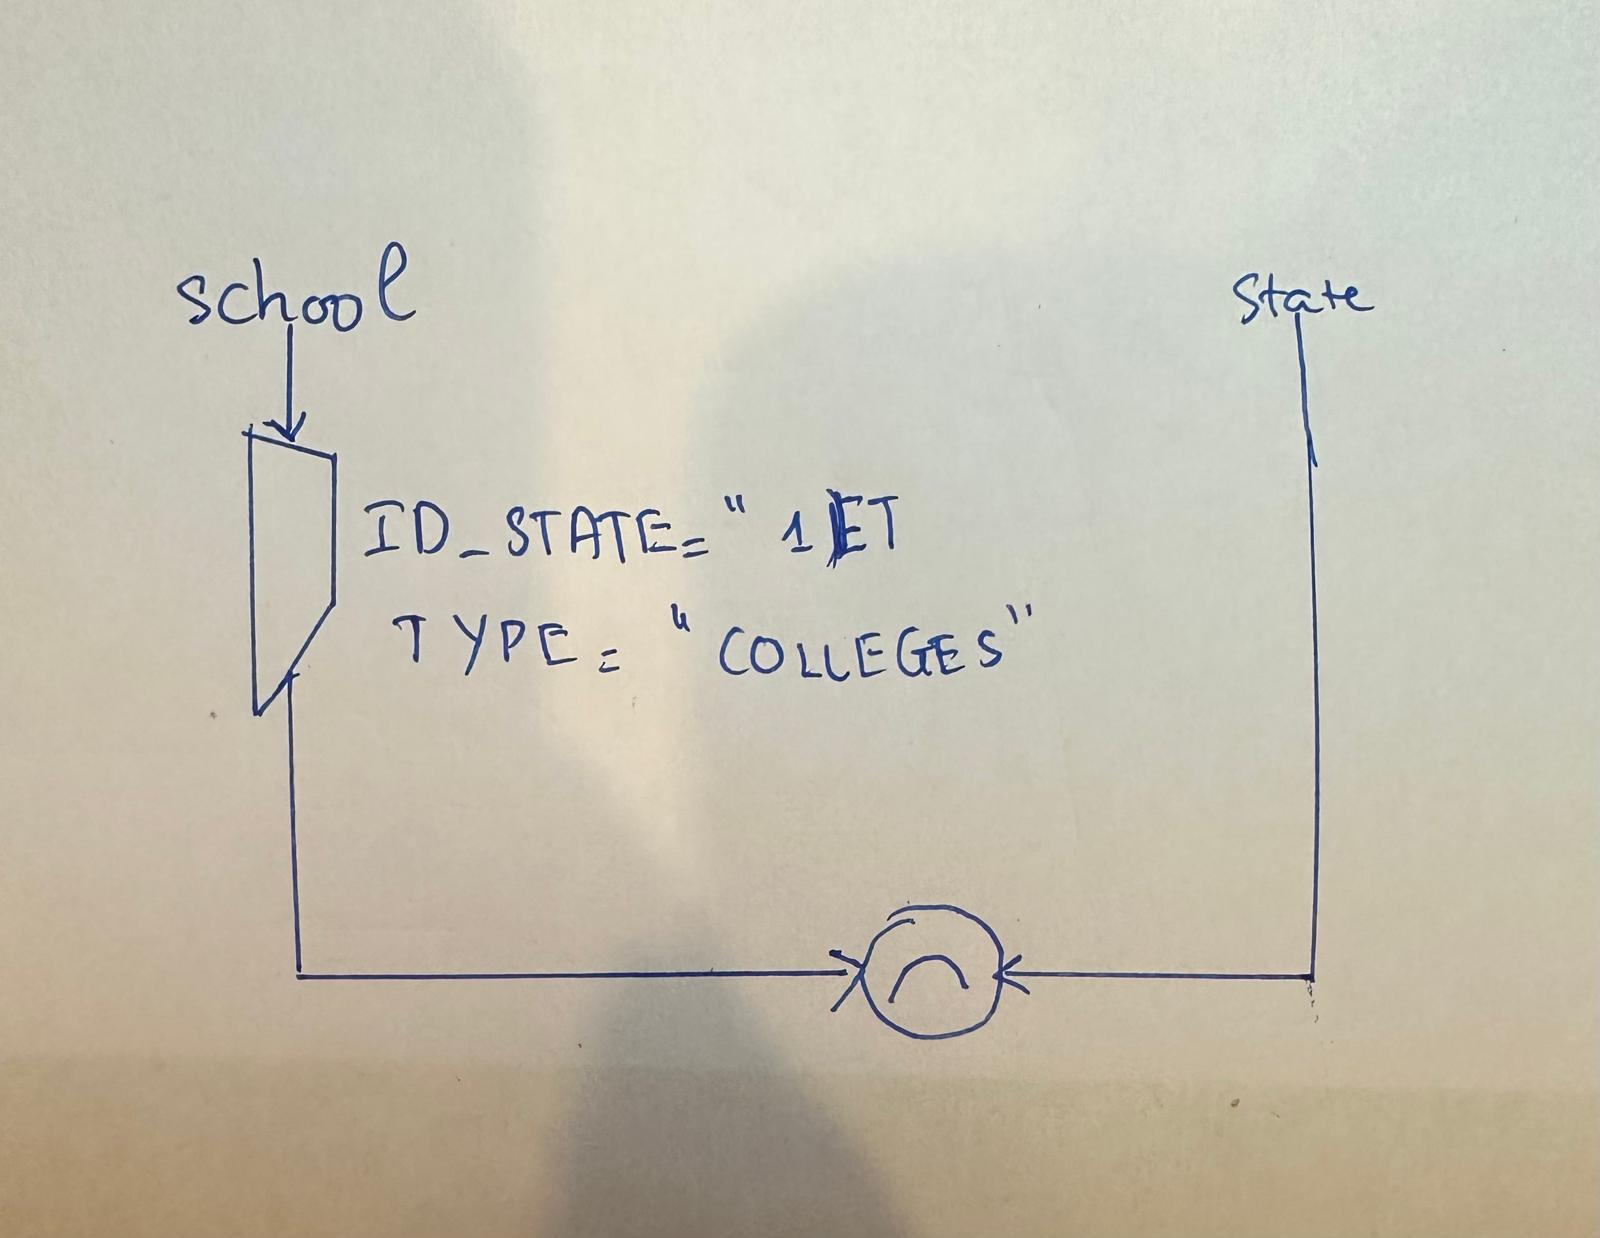 school
State
ID_STATE= " 1 ET
TYPE= "COLLEGES"